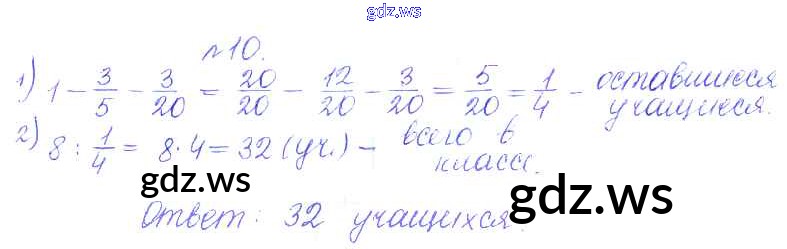 gdz.ws
№10.
1) 1 - 3/5 - 3/20 = 20/20 - 12/20 - 3/20 = 5/20 = 1/4 - оставшиеся учащиеся.
2) 8 : 1/4 = 8·4 = 32 (уч.) - всего в классе.
gdz.ws
gdz.ws
Ответ: 32 учащихся.